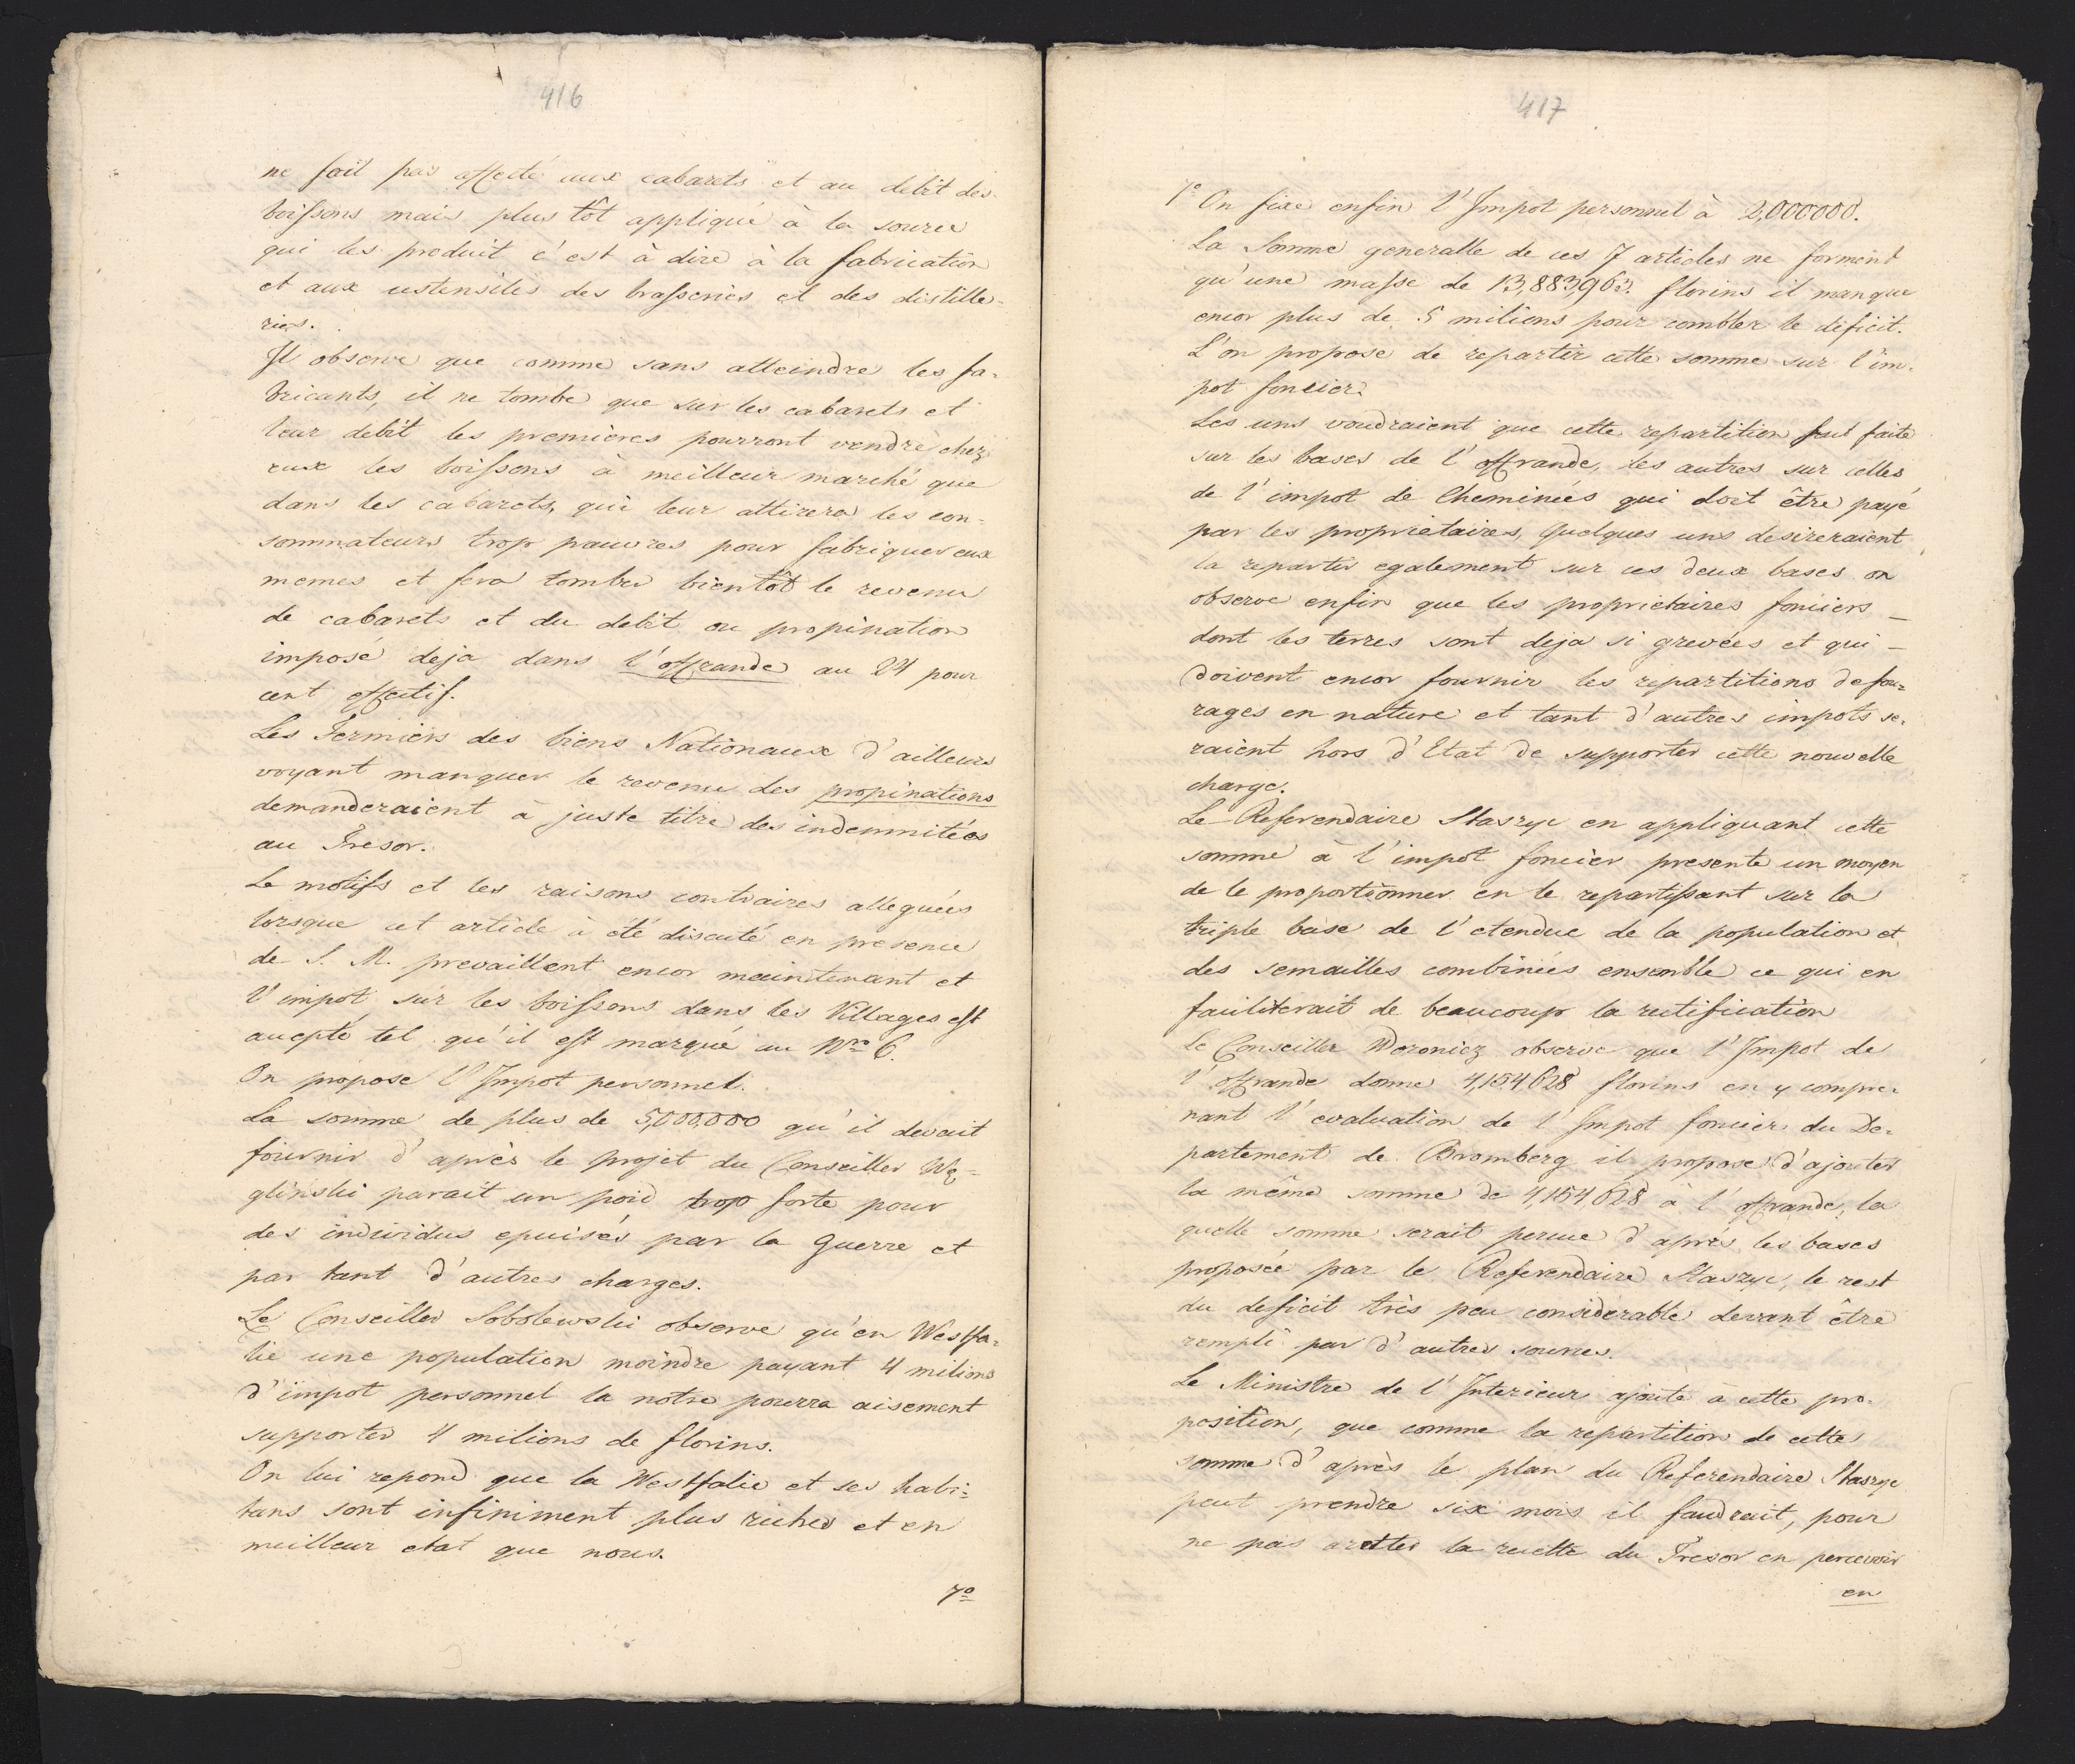 416
ne fait pas affecté aux cabarets et au debit des
boissons mais plus tôt appliqué à la source
qui les produit c'est à dire à la fabrication
et aux ustensiles des brasseries et des distille-
ries.
Il observe que comme sans atteindre les fa-
bricants, il ne tombe que sur les cabarets et
leur debit les premieres pourront vendre chez
eux les boissons à meilleur marché que
dans les cabarets, qui leur attirera les con-
sommateurs trop pauvres pour fabriquer eux
memes et fera tomber bientôt le revenu
de cabarets et du debit ou propination
imposé deja dans l'offrande au 24 pour
cent effectif.
Les Fermiers des biens Nationaux d'ailleurs
voyant manquer le revenu des propinations
demanderaient à juste titre des indemnitées
au Tresor.
Le motifs et les raisons contraires alleguées
lorsque cet article à été discuté en presence
de S. M. prevaillent encor maintenant et
l'impot sur les boissons dans les Villages est
accepté tel qu'il est marqué au Nro 6.
On propose l'Impot personnel.
La somme de plus de 5,000,000 qu'il devait
fournir d'après le projet du Conseiller Wę-
gliński parait un poid trop forte pour
des individus epuisés par la Guerre et
par tant d'autres charges.
Le Conseiller Sobolewski observe qu'en Westfa-
lie une population moindre payant 4 milions
d'impot personnel la notre pourra aisement
supporter 4 milions de florins.
On lui repond que la Westfalie et ses habi-
tans sont infiniment plus riches et en
meilleur etat que nous.
7o
417
7o On fixe enfin l'Impot personnel à 2,000000.
La Somme generalle de ces 7 articles ne forment
qu'une masse de 13,883,963. florins il manque
encor plus de 5 milions pour combler le déficit.
L'on propose de repartir cette somme sur l'im-
pot foncier.
Les uns voudraient que cette repartition fut faite
sur les bases de l'offrande, les autres sur celles
de l'impot de Cheminées qui doit être payé
par les proprietaires, Quelques uns desireraient
la repartir egalement sur ces deux bases on
observe enfin que les proprietaires fonciers _
dont les terres sont deja si grevées et qui _
doivent encor fournir les repartitions de fou-
rages en nature et tant d'autres impots se-
raient hors d'Etat de supporter cette nouvelle
charge.
Le Referendaire Staszyc en appliquant cette
somme à l'impot foncier presente un moyen
de le proportionner en le repartissant sur la
triple base de l'etendue de la population et
des semailles combinées ensemble ce qui en
faciliterait de beaucoup la rectification
le Conseiller Woronicz observe que l'Impot de
l'offrande donne 4,154,628 florins en y compre-
nant l'evaluation de l'Impot foncier du De-
partement de Bromberg il propose d'ajouter
la même somme de 4,154,628 à l'offrande, la
quelle somme serait percue d'après les bases
proposée par le Referendaire Staszyc, le rest
du deficit très peu considerable devant être
rempli par d'autres sources.
Le Ministre de l'Interieur ajoute à cette pro-
position, que comme la repartition de cette
somme d'après le plan du Referendaire Staszyc
peut prendre six mois il faudrait, pour
ne pas aretter la recette du Tresor en percevoir
en